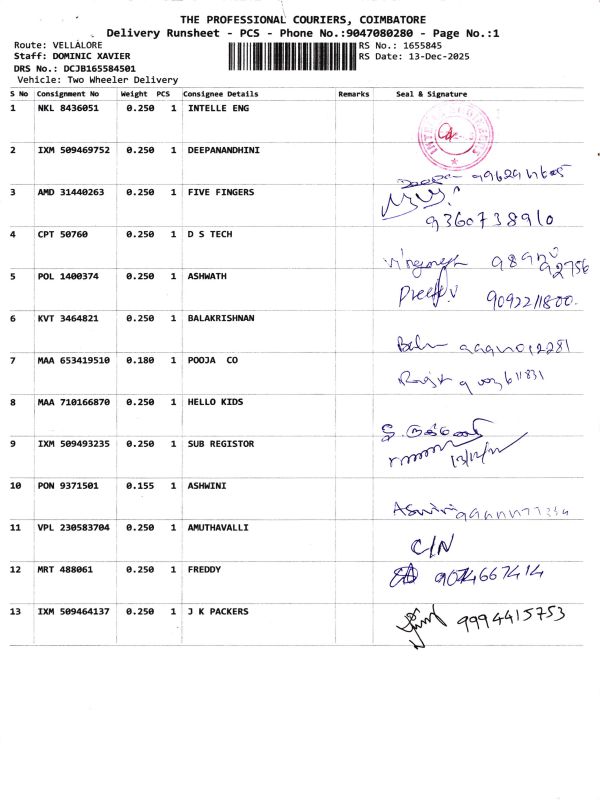 THE PROFESSIONAL COURIERS, COIMBATORE
Delivery Runsheet - PCS - Phone No.:9047080280 - Page No.:1
Route: VELLALORE
Staff: DOMINIC XAVIER
DRS No.: DCJB165584501
Vehicle: Two Wheeler Delivery
RS No.: 1655845
RS Date: 13-Dec-2025
S No Consignment No Weight PCS Consignee Details Remarks Seal & Signature
1 NKL 8436051 0.250 1 INTELLE ENG
2 IXM 509469752 0.250 1 DEEPANANDHINI
3 AMD 31440263 0.250 1 FIVE FINGERS 9360738910
4 CPT 50760 0.250 1 D S TECH
5 POL 1400374 0.250 1 ASHWATH 9092211800.
6 KVT 3464821 0.250 1 BALAKRISHNAN
7 MAA 653419510 0.180 1 POOJA CO
8 MAA 710166870 0.250 1 HELLO KIDS
9 IXM 509493235 0.250 1 SUB REGISTOR
10 PON 9371501 0.155 1 ASHWINI
11 VPL 230583704 0.250 1 AMUTHAVALLI C/N
12 MRT 488061 0.250 1 FREDDY
13 IXM 509464137 0.250 1 J K PACKERS 9994415753